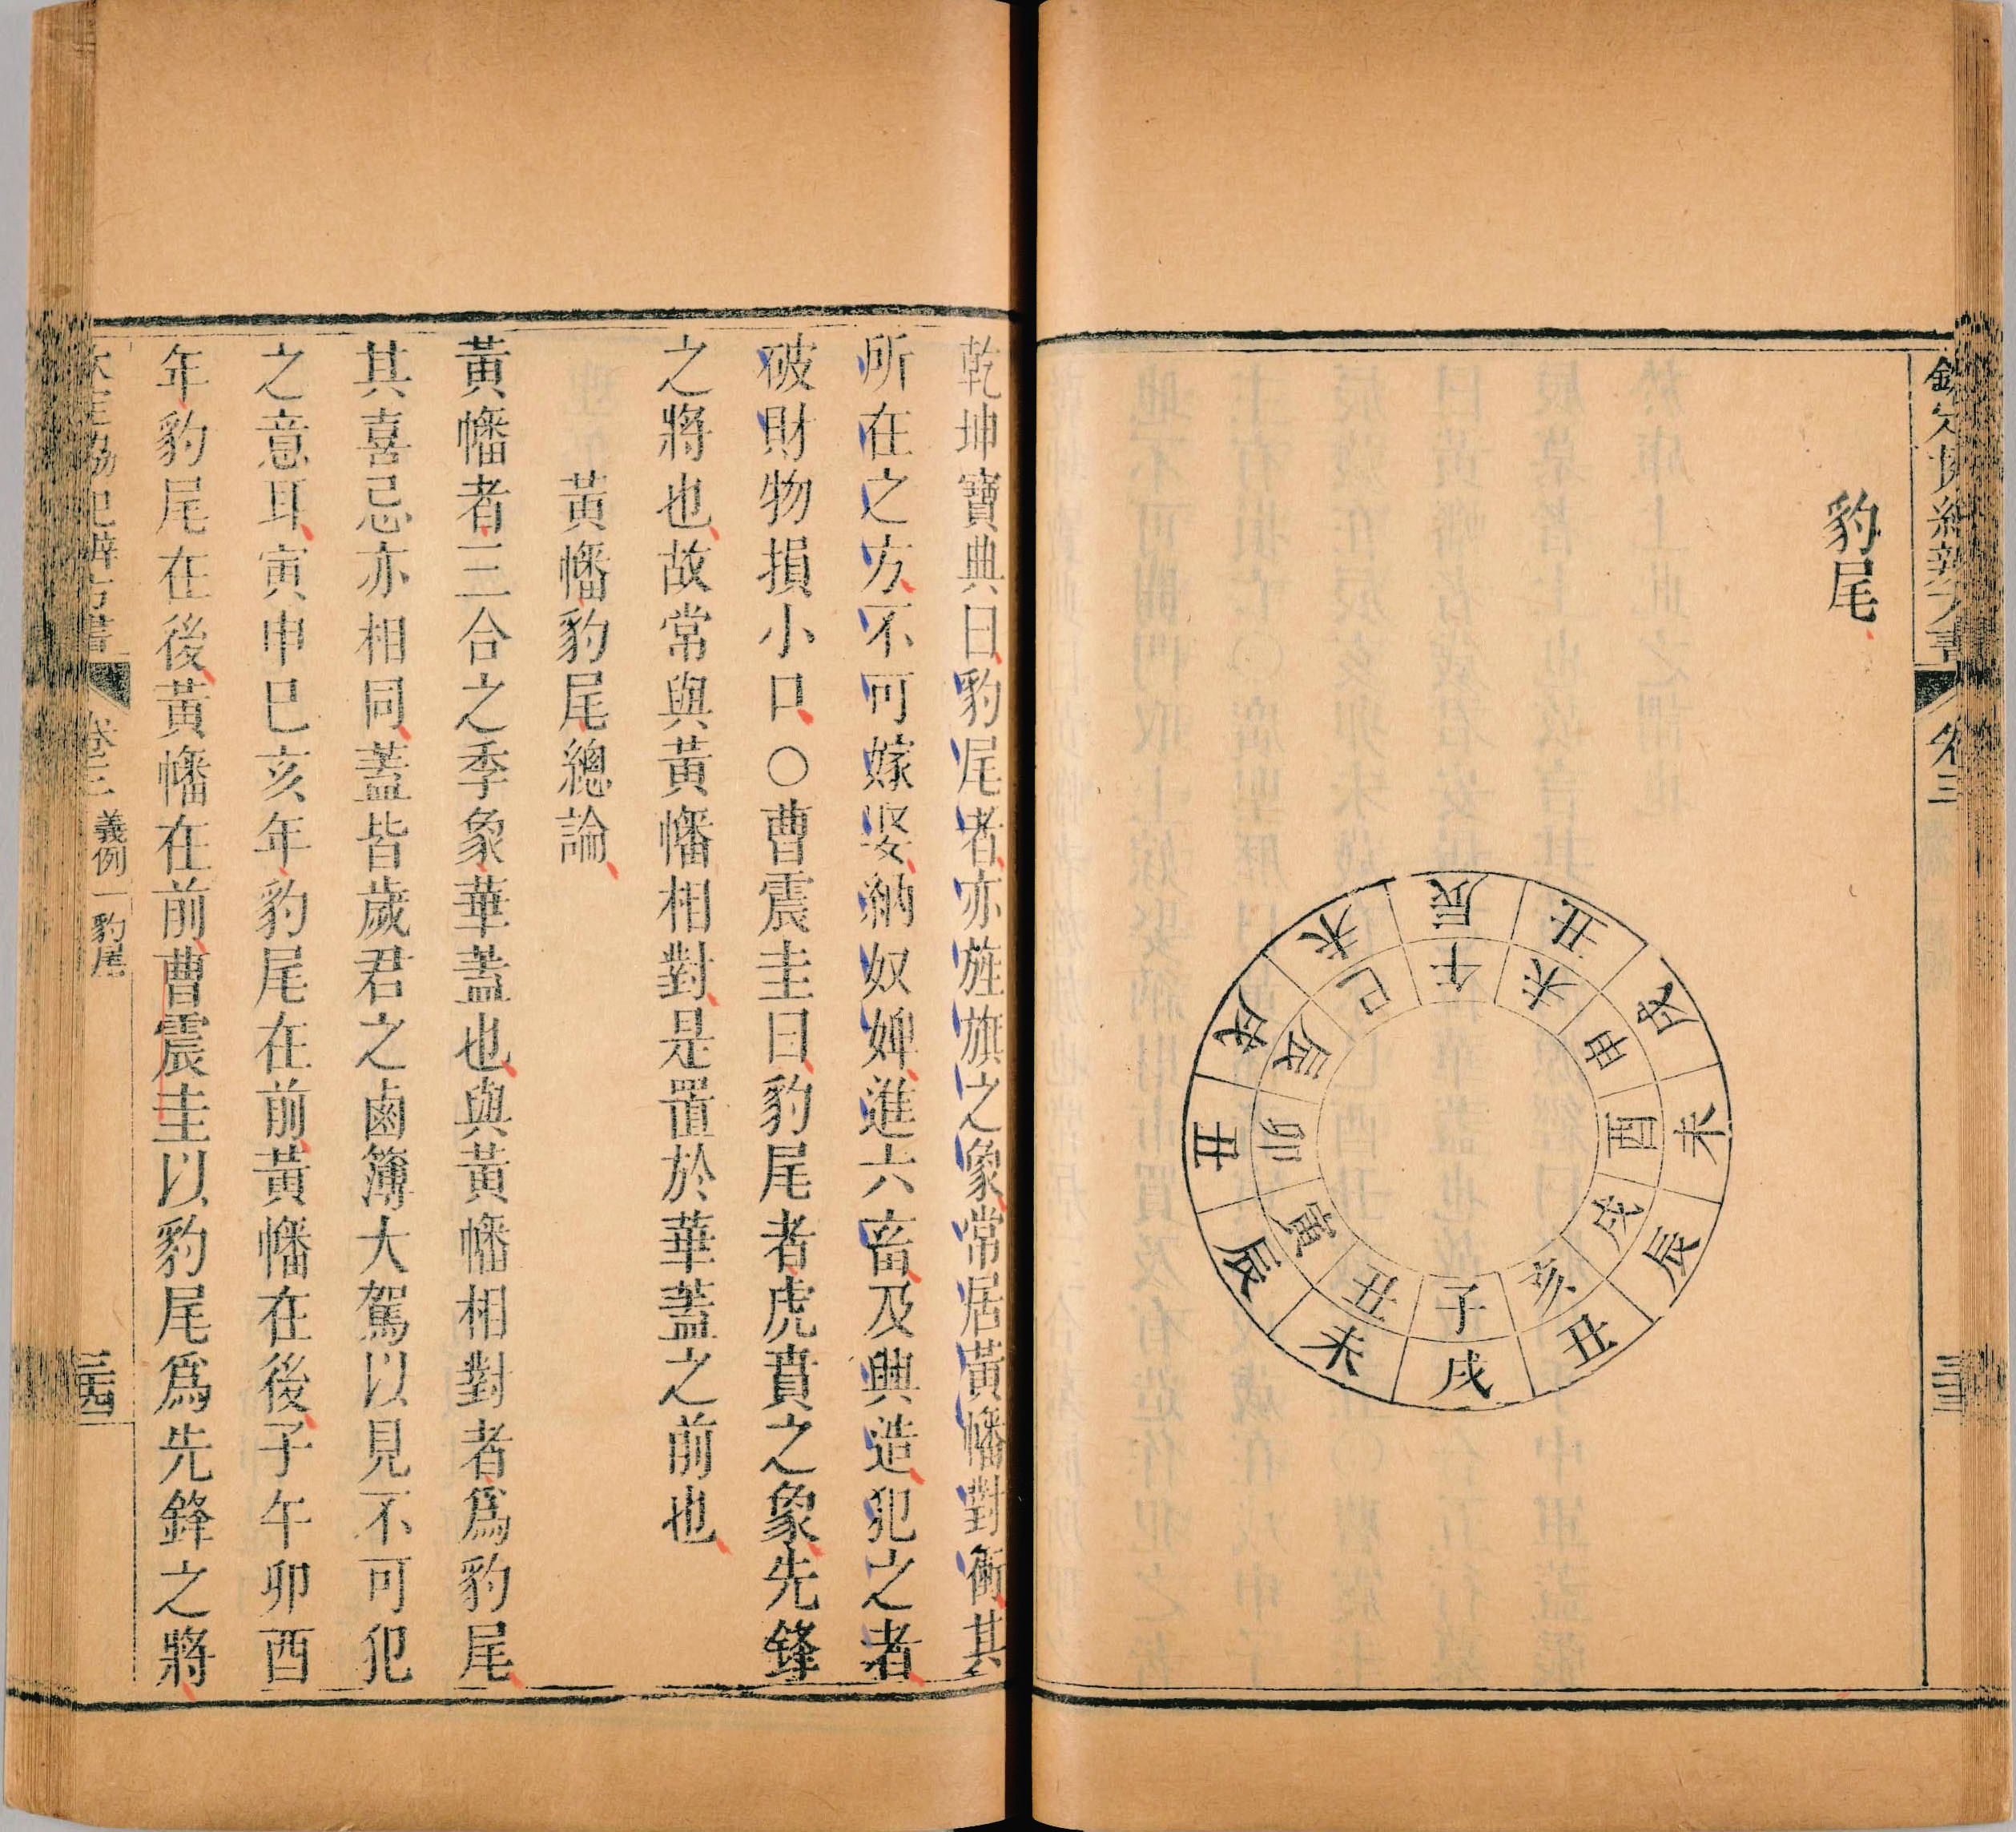 欽定協紀辨方書 卷三
豹尾
辰
丑
戌
未
辰
丑
戌
未
辰
丑
戌
未
午
未
申
酉
戌
亥
子
丑
寅
卯
辰
巳
乾坤寶典曰豹尾者亦旌旗之象常居黃幡對衝其
所在之方不可嫁娶納奴婢進六畜及興造犯之者
破財物損小口○曹震圭曰豹尾者虎賁之象先鋒
之將也故常與黃幡相對是置於華蓋之前也
黃幡豹尾總論
黃幡者三合之季象華蓋也與黃幡相對者爲豹尾
其喜忌亦相同蓋皆歲君之鹵簿大駕以見不可犯
之意耳寅申巳亥年豹尾在前黃幡在後子午卯酉
年豹尾在後黃幡在前曹震圭以豹尾爲先鋒之將
欽定協紀辨方書 卷三 義例一 豹尾 三十四